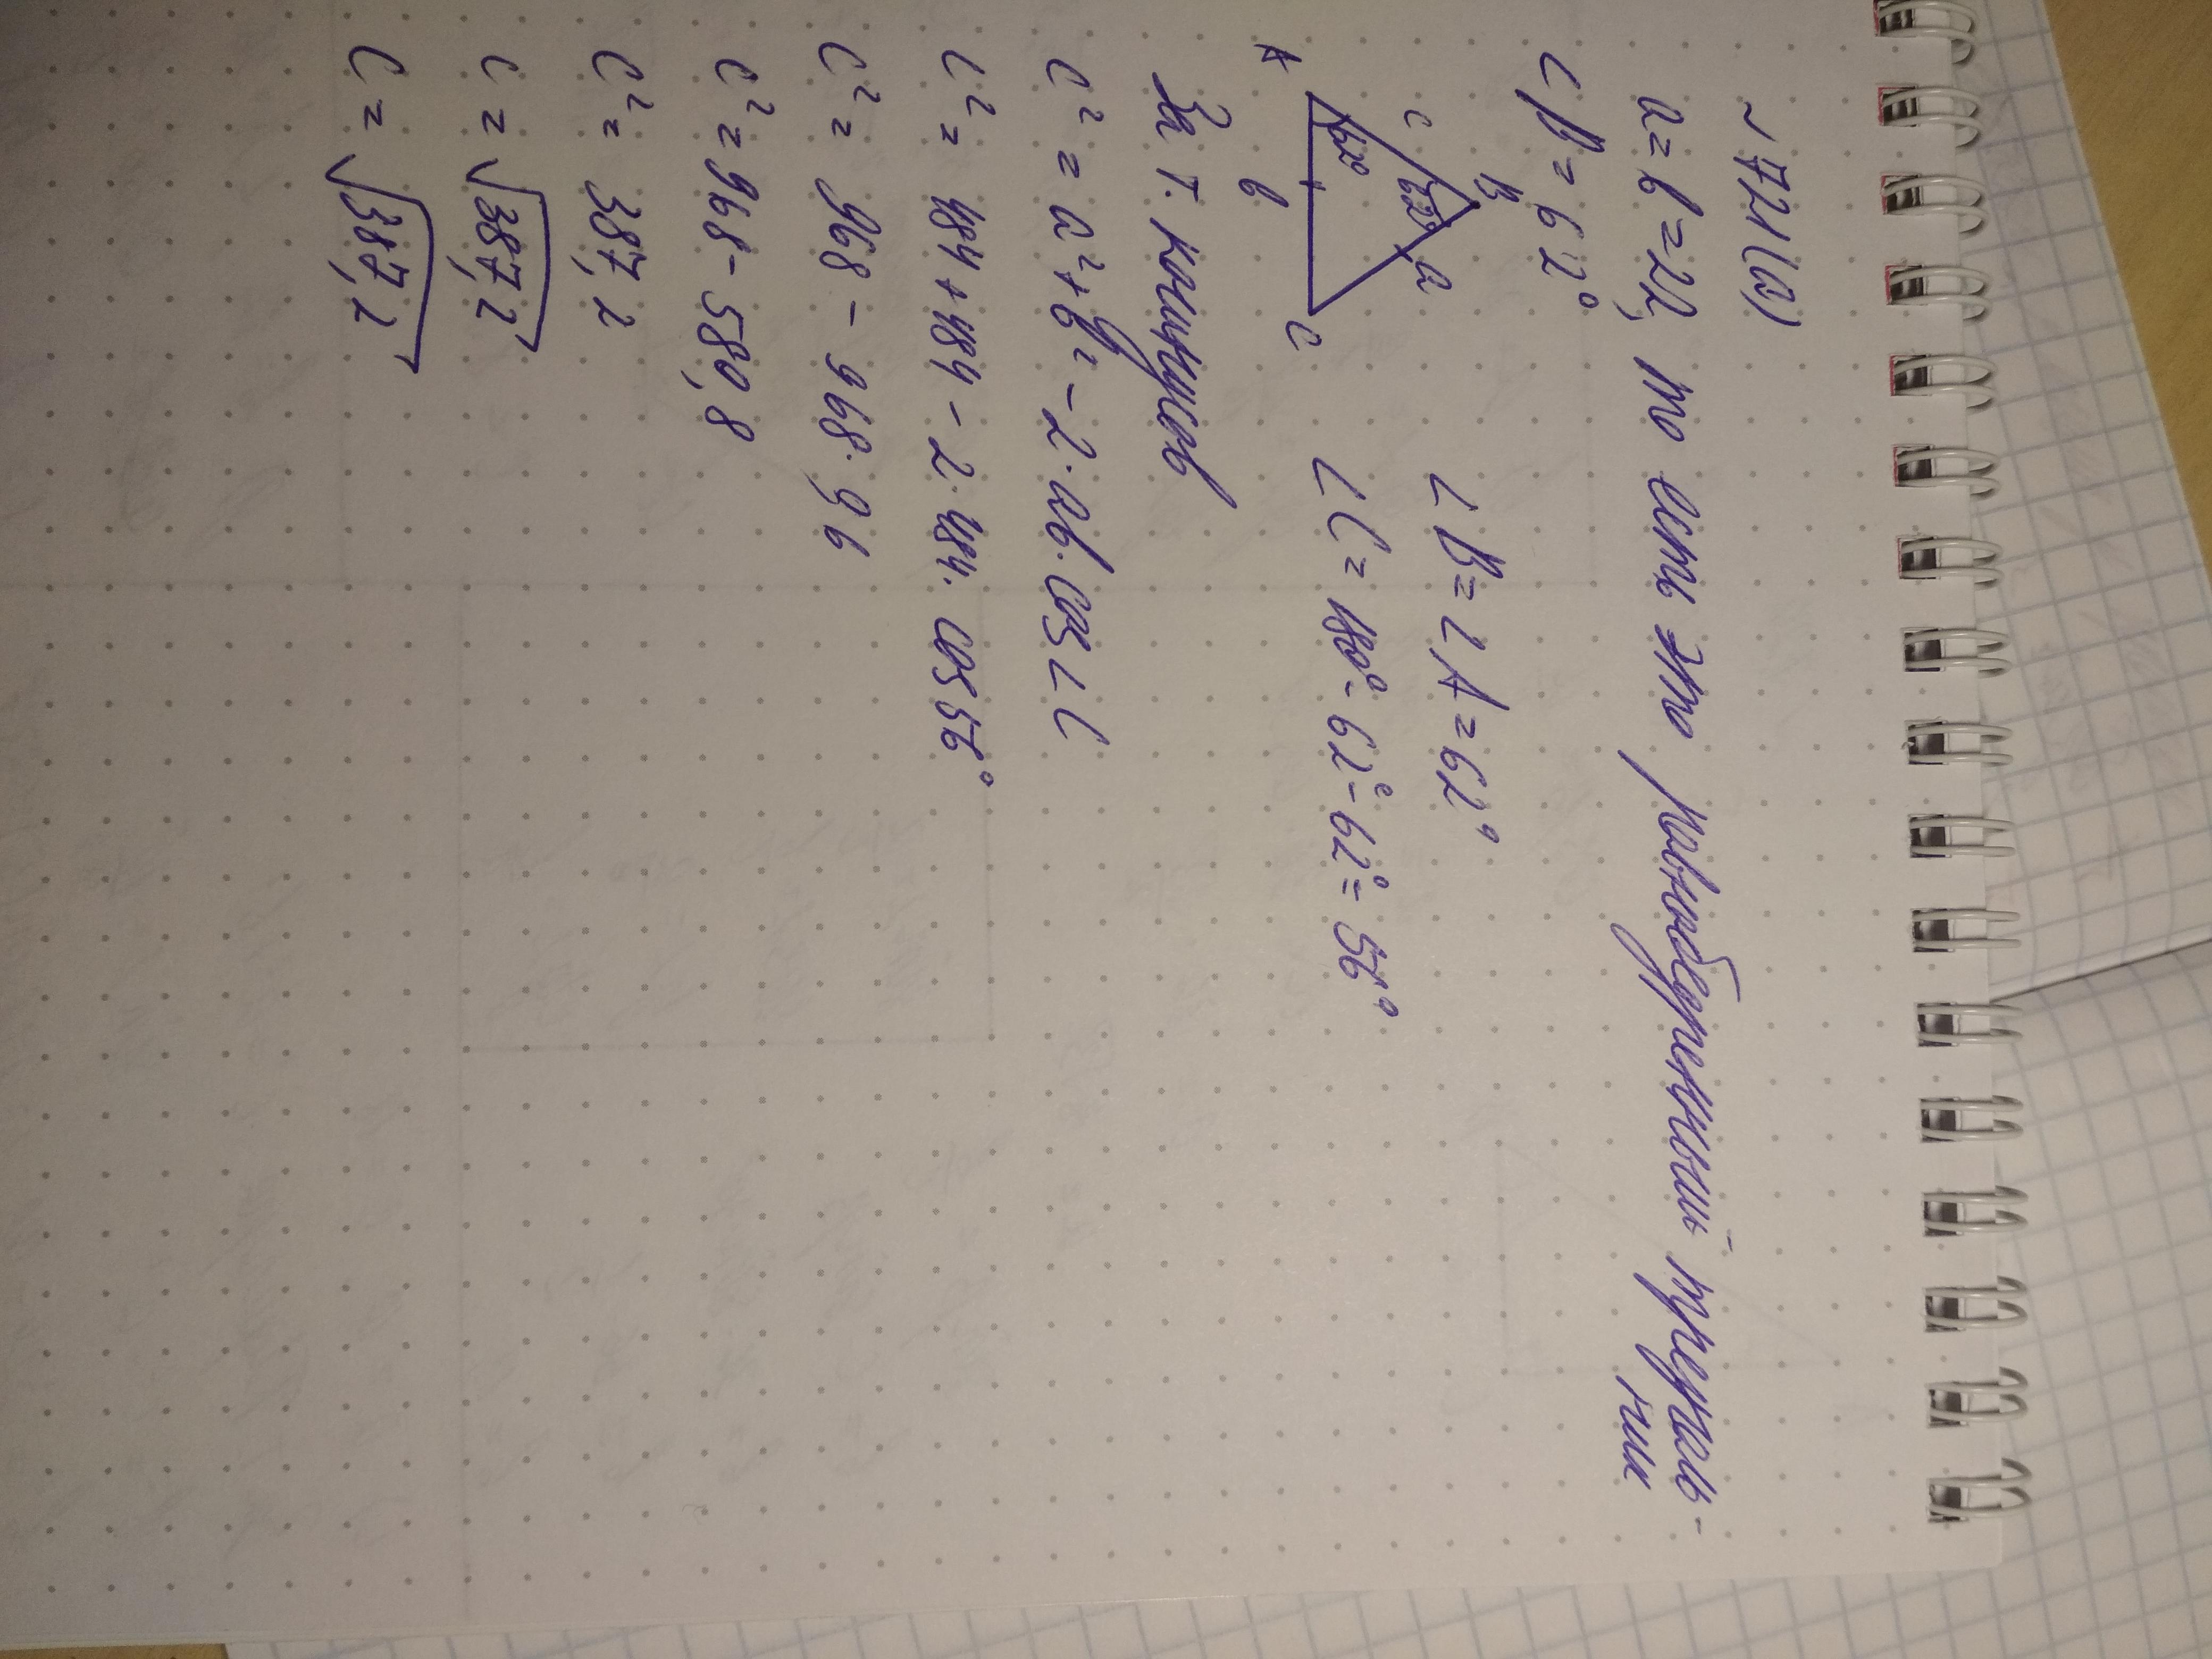 ~ 721(а)
a = b = 22, то есть это равнобедренный треуголь-
ник
∠B = 62°
B
c
62°
a
62°
A
b
C
∠B = ∠A = 62°
∠C = 180° - 62° - 62° = 56°
За т. косинусов
c² = a² + b² - 2·ab·cos∠C
c² = 484 + 484 - 2·484·cos 56°
c² = 968 - 968·96
c² = 968 - 580,8
c² = 387,2
c = √387,2
c = √387,2